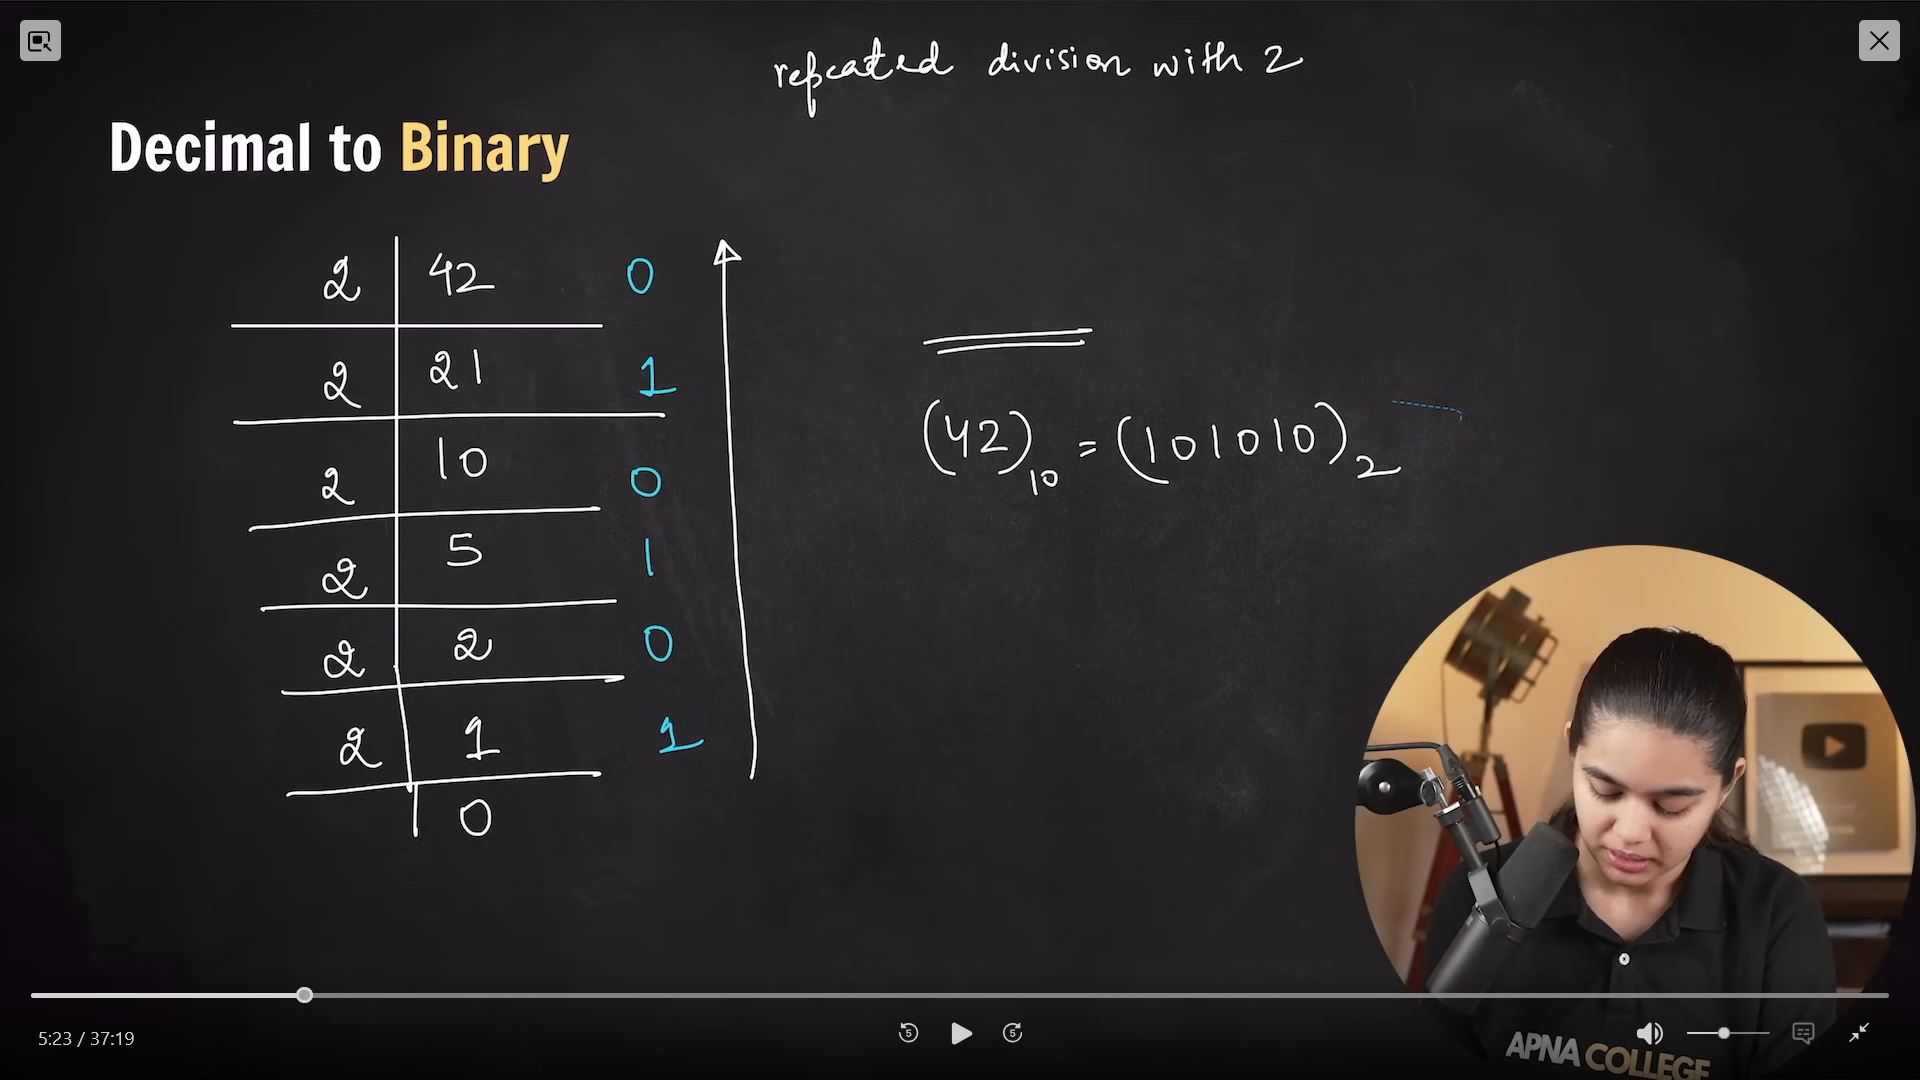 repeated division with 2
Decimal to Binary
2 42 0
2 21 1
2 10 0
2 5 1
2 2 0
2 1 1
0
(42)10 = (101010)2
5:23 / 37:19
5
5
APNA COLLEGE